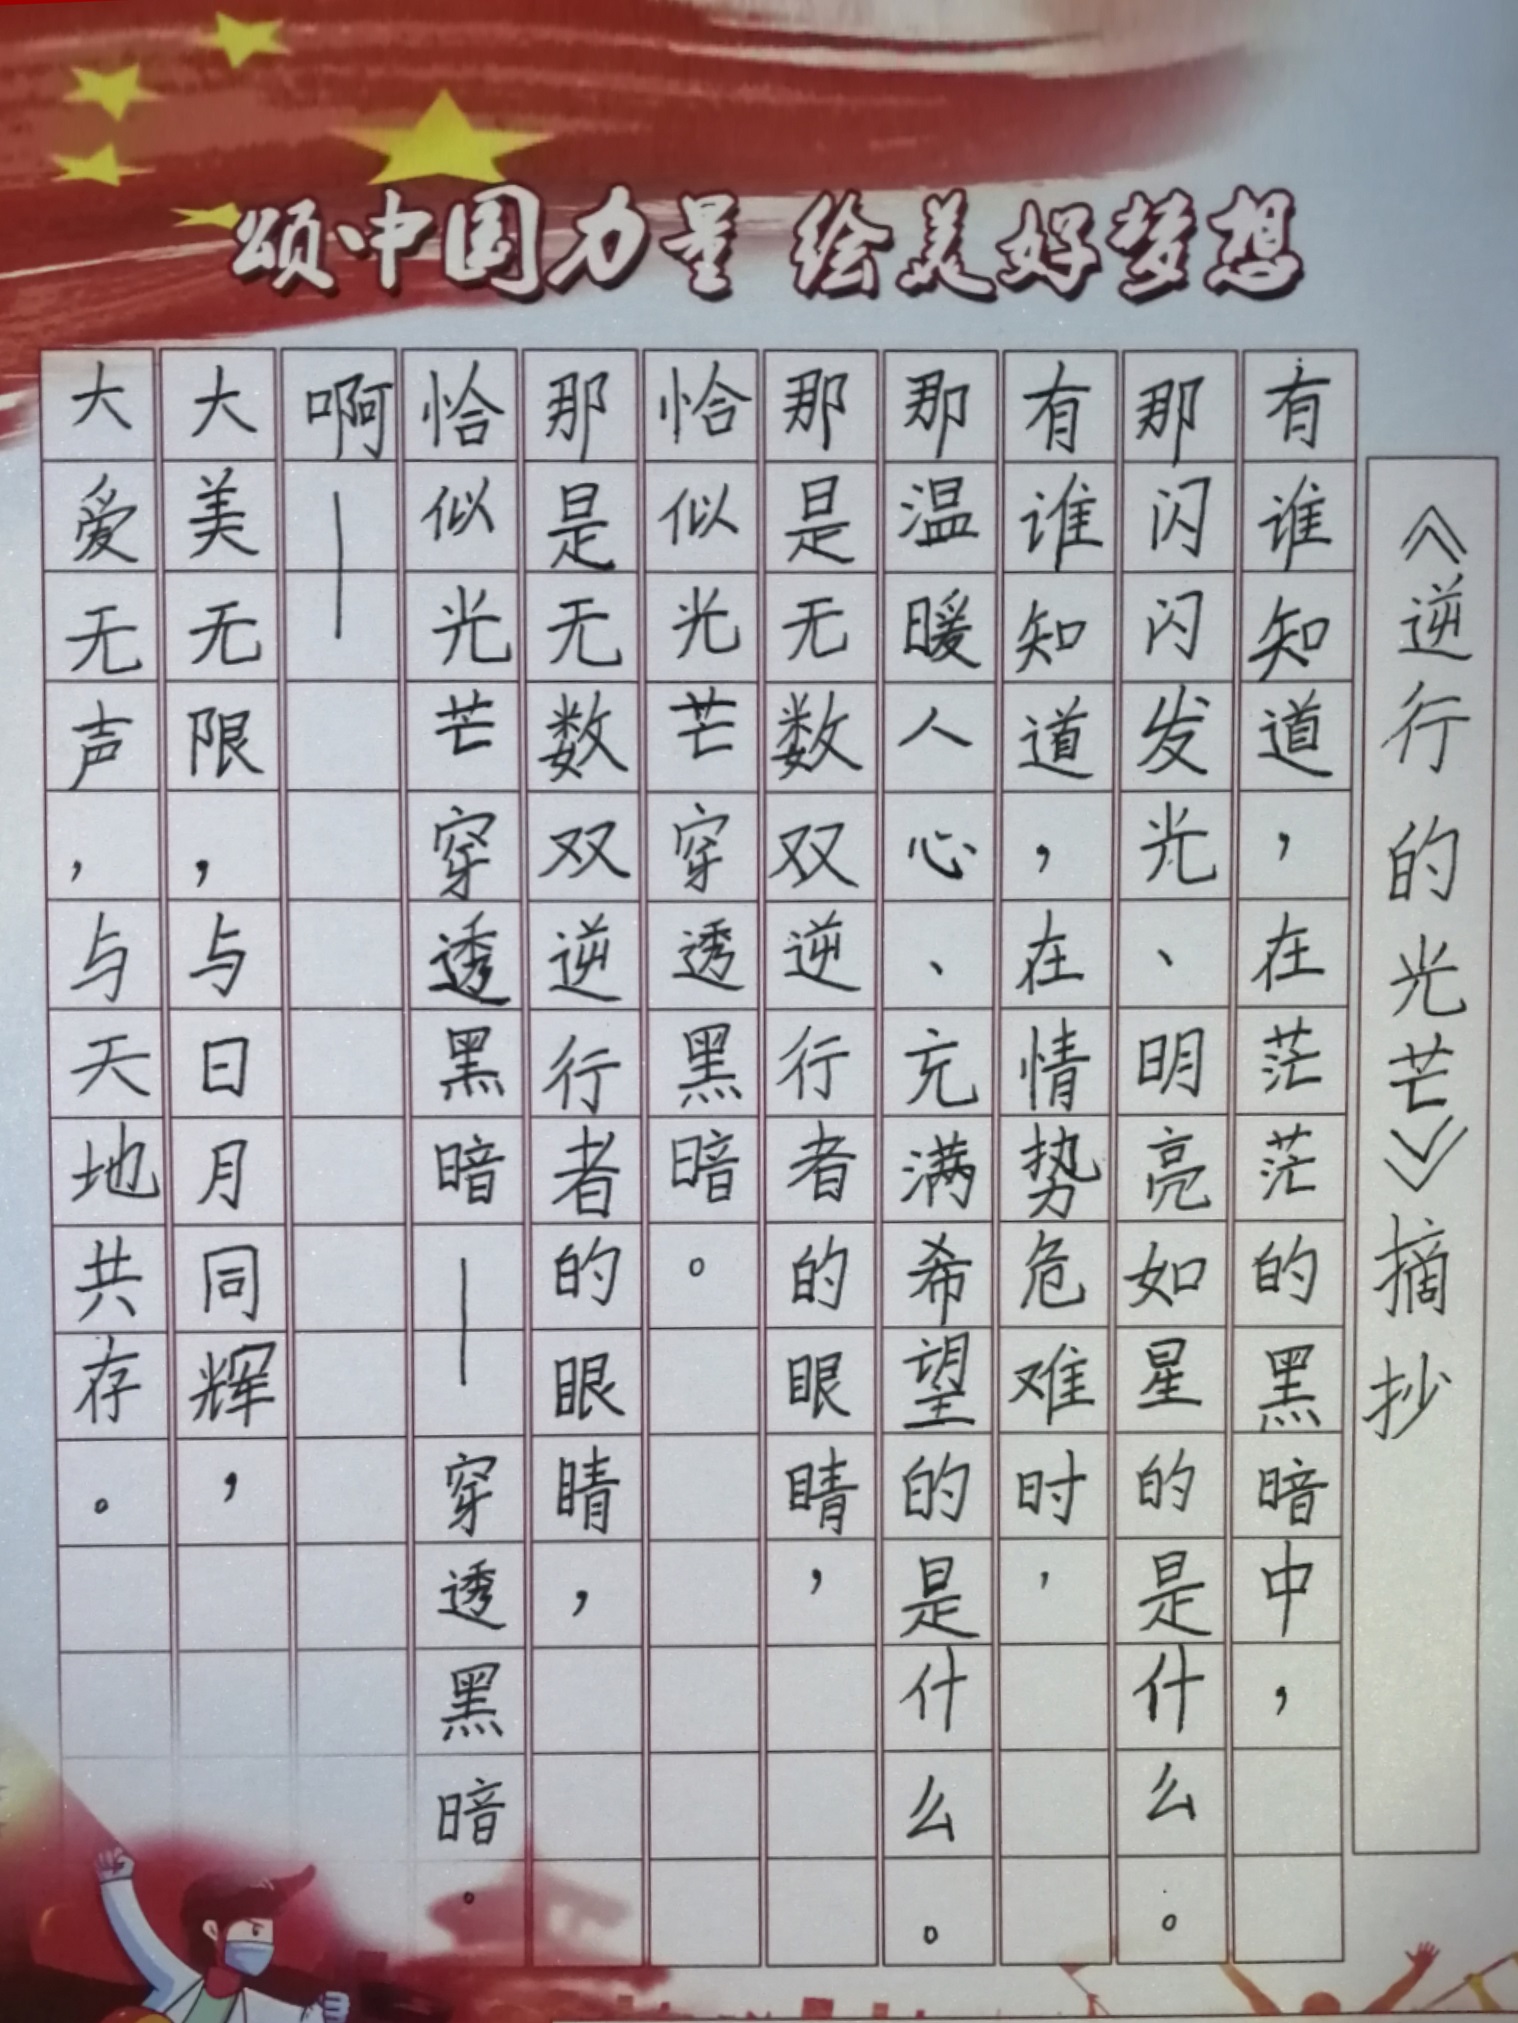 颂中国力量 绘美好梦想
《逆行的光芒》摘抄
有谁知道，在茫茫的黑暗中，
那闪闪发光、明亮如星的是什么。
有谁知道，在情势危难时，
那温暖人心、充满希望的是什么。
那是无数双逆行者的眼睛，
恰似光芒穿透黑暗。
那是无数双逆行者的眼睛，
恰似光芒穿透黑暗——穿透黑暗。
啊——
大美无限，与日月同辉，
大爱无声，与天地共存。